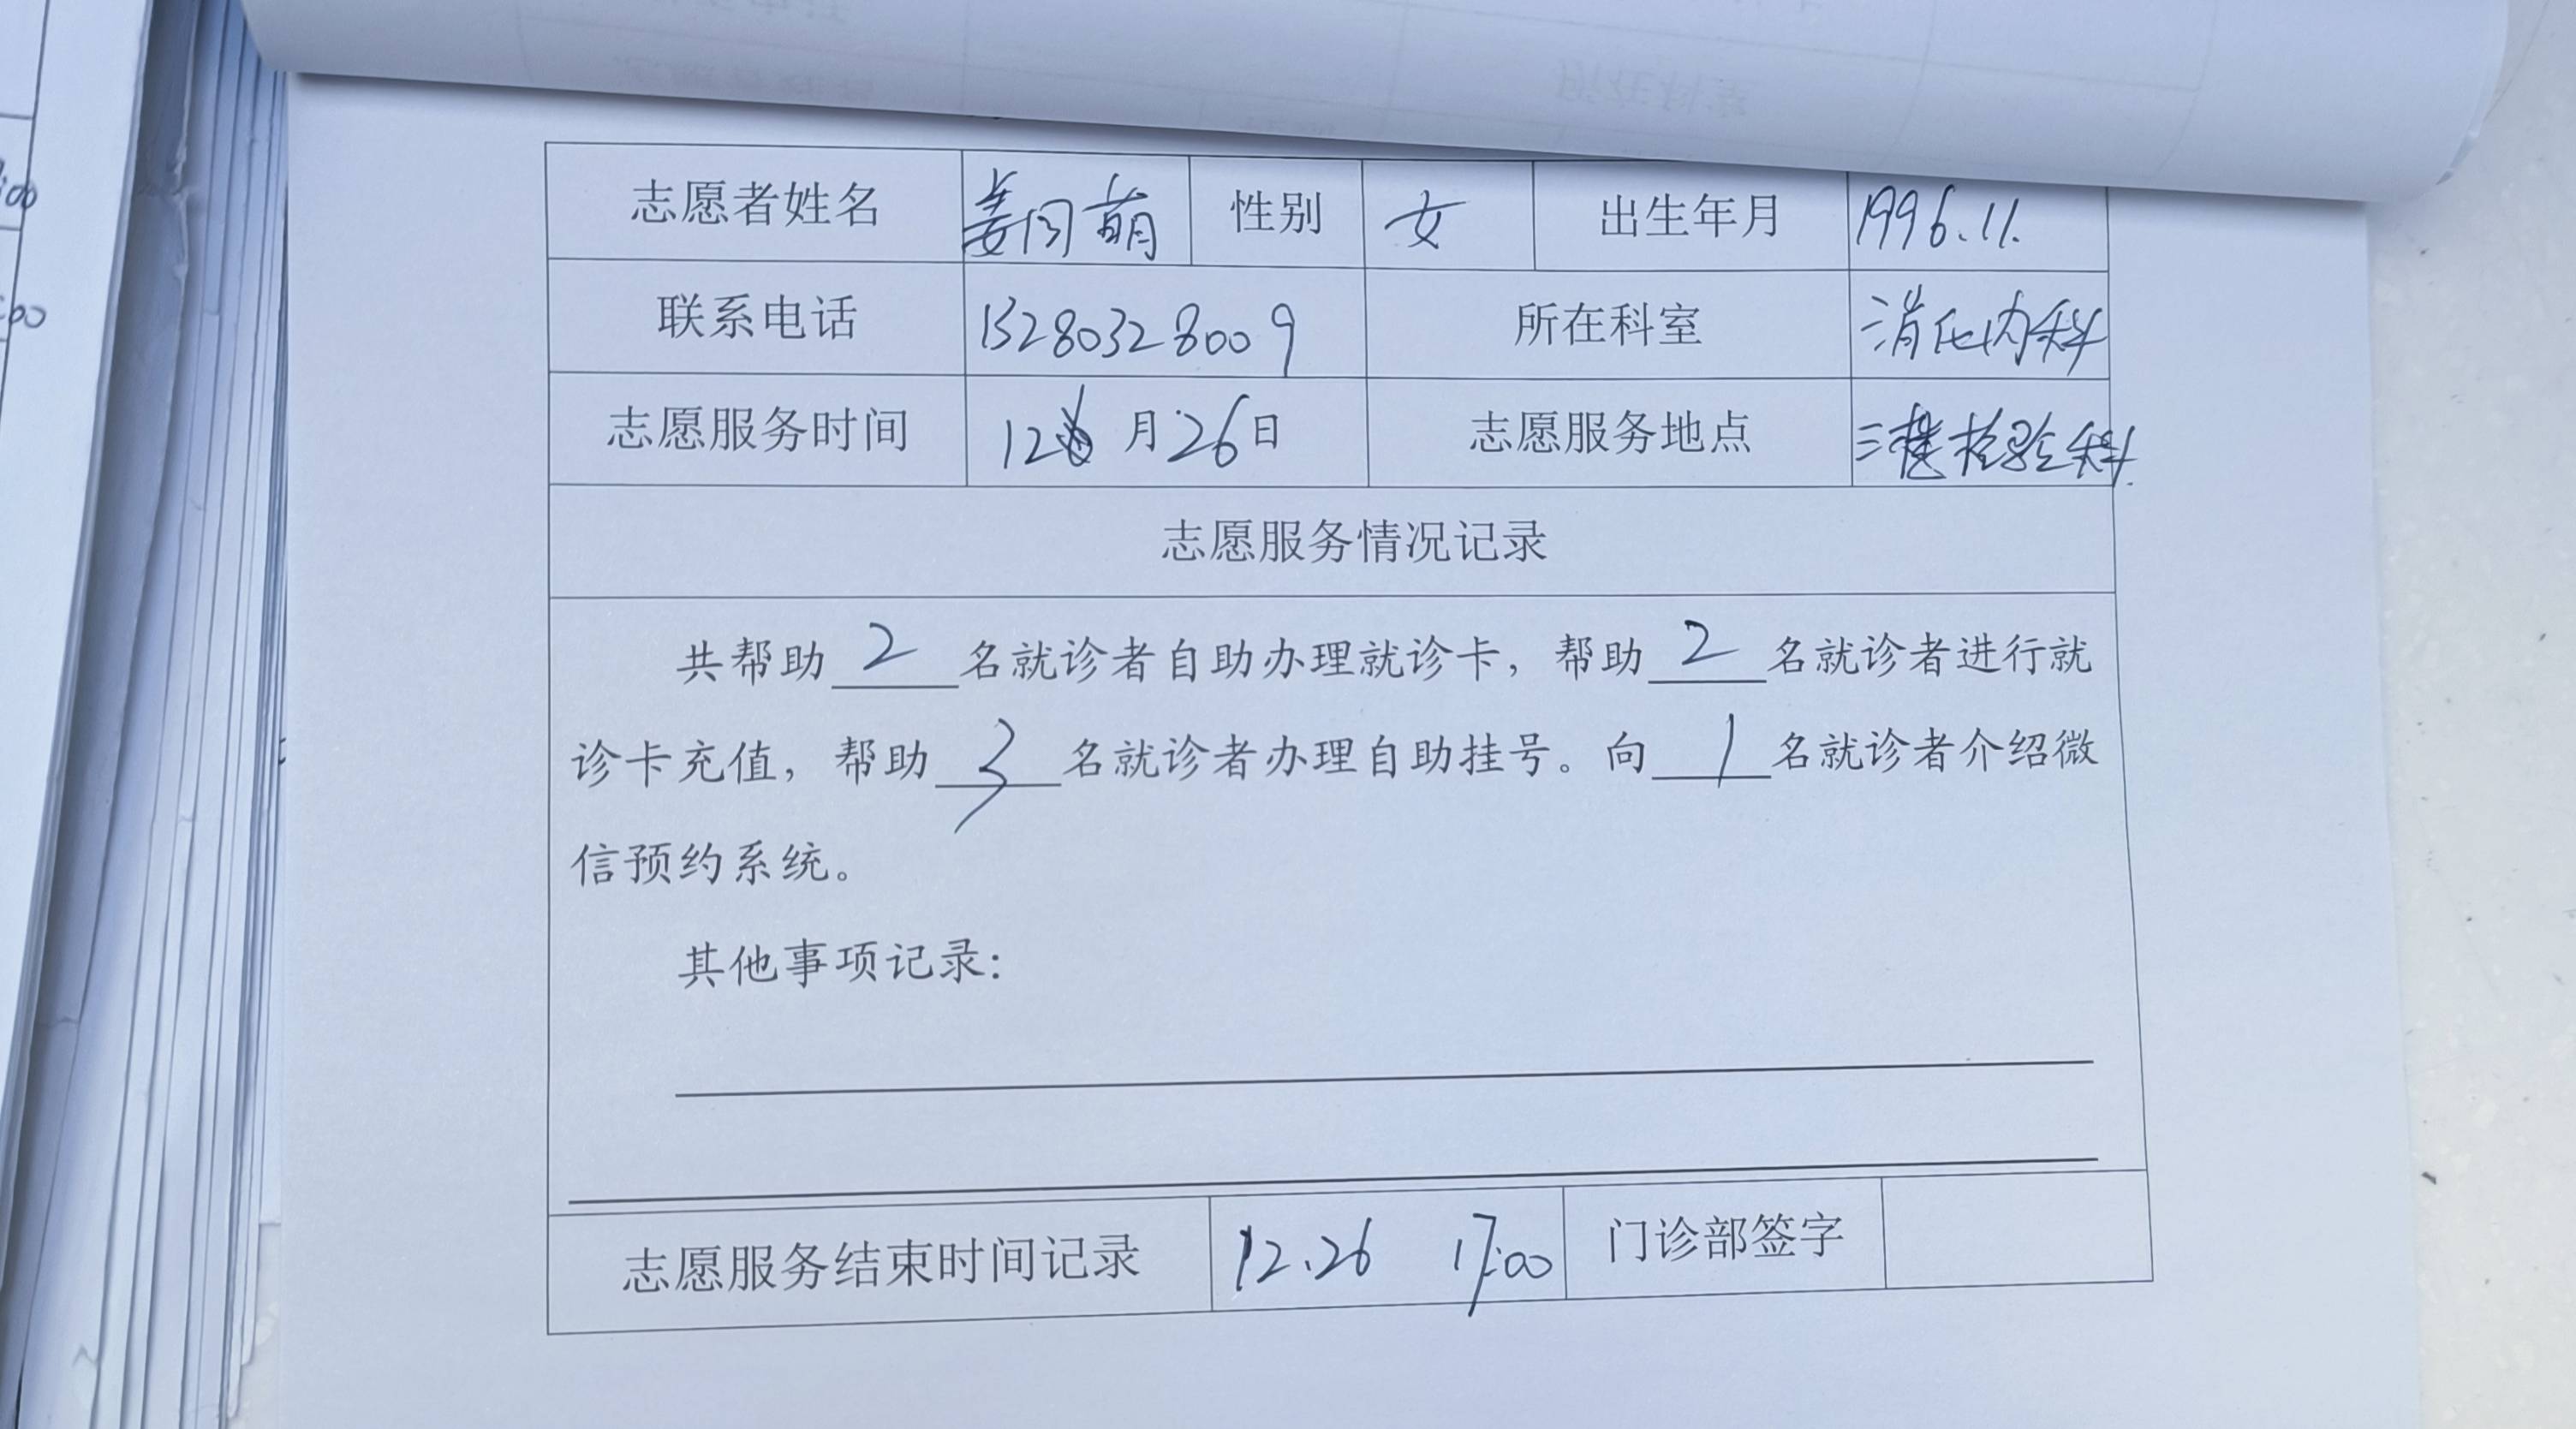 志愿者姓名 姜同萌 性别 女 出生年月 1996.11.
联系电话 15280328009 所在科室 消化内科
志愿服务时间 12 月 26 日 志愿服务地点 三楼检验科.
志愿服务情况记录
共帮助 2 名就诊者自助办理就诊卡，帮助 2 名就诊者进行就
诊卡充值，帮助 3 名就诊者办理自助挂号。向 1 名就诊者介绍微
信预约系统。
其他事项记录：
志愿服务结束时间记录 12.26 17:00 门诊部签字